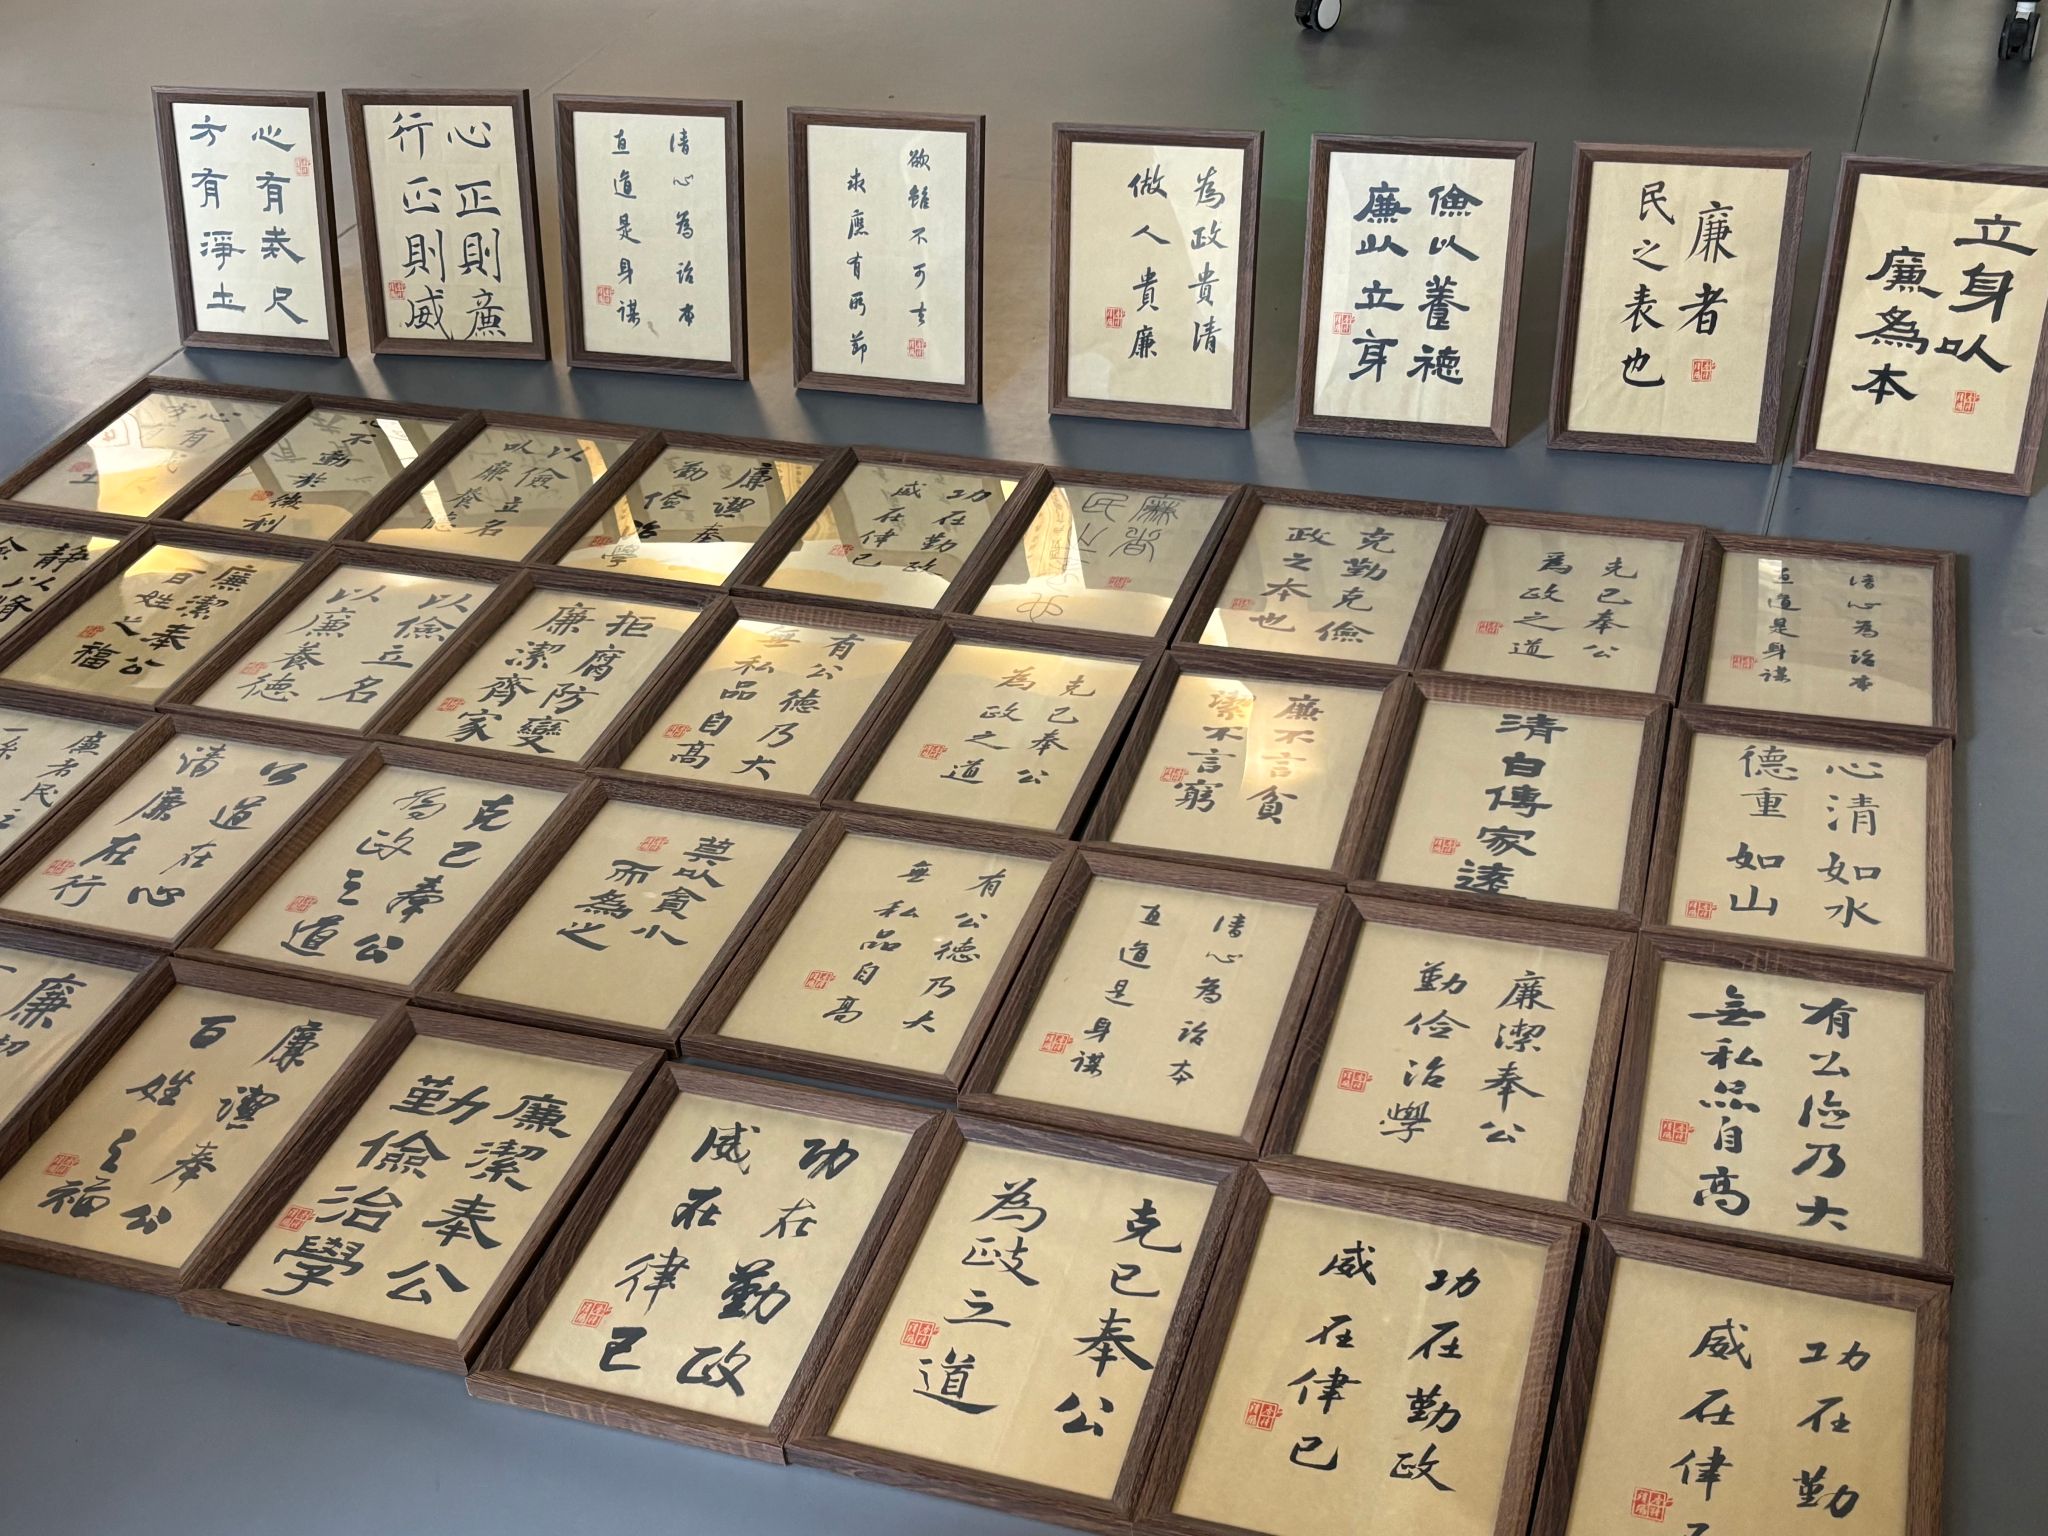 心有戒尺
方有淨土
心正則廉
行正則威
清心為治本
直道是身謀
欲雖不可去
求應有所節
為政貴清
做人貴廉
儉以養德
廉以立身
廉者
民之表也
立身以
廉為本
心有戒
土
心不動於
微利
以儉立名
以廉養德
廉潔奉
勤儉治學
功在勤政
威在律己
廉者
民之
克勤克儉
政之本也
克己奉公
為政之道
清心為治本
直道是身謀
靜以脩
儉以
廉潔奉公
百姓之福
以儉立名
以廉養德
拒腐防變
廉潔齊家
有公德乃大
無私品自高
克己奉公
為政之道
廉不言貧
潔不言窮
清白傳家遠
心清如水
德重如山
廉者民之
以道在心
清廉在行
克己奉公
為政之道
莫以貪小
而為之
有公德乃大
無私品自高
清心為治本
直道是身謀
廉潔奉公
勤儉治學
有公德乃大
無私品自高
廉
廉潔奉公
百姓之福
廉潔奉公
勤儉治學
功在勤政
威在律己
克己奉公
為政之道
功在勤政
威在律己
功在勤
威在律